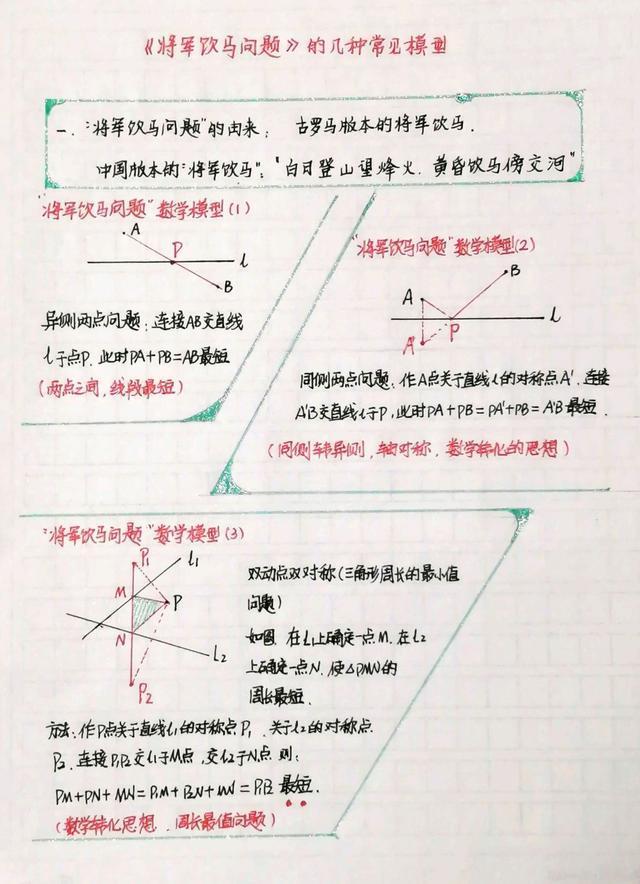 《将军饮马问题》的几种常见模型
一. "将军饮马问题"的由来: 古罗马版本的将军饮马.
中国版本的"将军饮马": "白日登山望烽火. 黄昏饮马傍交河"
"将军饮马问题"数学模型(1)
A
P
l
B
异侧两点问题: 连接AB交直线
l于点P. 此时PA+PB=AB最短
(两点之间, 线段最短)
"将军饮马问题"数学模型(2)
B
A
l
P
A'
同侧两点问题: 作A点关于直线l的对称点A'. 连接
A'B交直线l于P, 此时PA+PB=PA'+PB=A'B最短.
(同侧转异侧, 轴对称, 数学转化的思想)
"将军饮马问题"数学模型(3)
P1
l1
M
P
N
l2
P2
双动点双对称(三角形周长的最小值
问题)
如图. 在l1上确定一点M. 在l2
上确定一点N. 使△PMN的
周长最短.
方法: 作P点关于直线l1的对称点P1. 关于l2的对称点
P2. 连接P1P2交l1于M点, 交l2于N点 则:
PM+PN+MN=P1M+P2N+MN=P1P2 最短.
(数学转化思想. 周长最值问题)